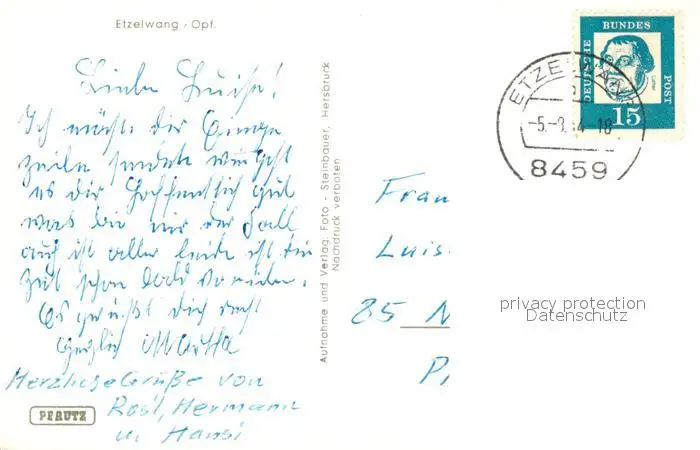 Etzelwang, Opf.
Liebe Luise!
Ich möchte dir Einige
zeilen senden wie geht
es dir Hoffentlich gut
was bei mir der Fall
auch ist aller leider ist die
Zeit schon bald vorüber.
Es grüßt dich recht
herzlich Martha
Herzliche Grüße von
Rosl, Hermann
u. Hansi
PERUTZ
Aufnahme und Verlag: Foto - Steinbauer, Hersbruck
Nachdruck verboten
DEUTSCHE BUNDES POST
Luther
15
ETZELWANG
-5.-8. 64-18
8459
Frau
Luis
85 N
P
privacy protection
Datenschutz